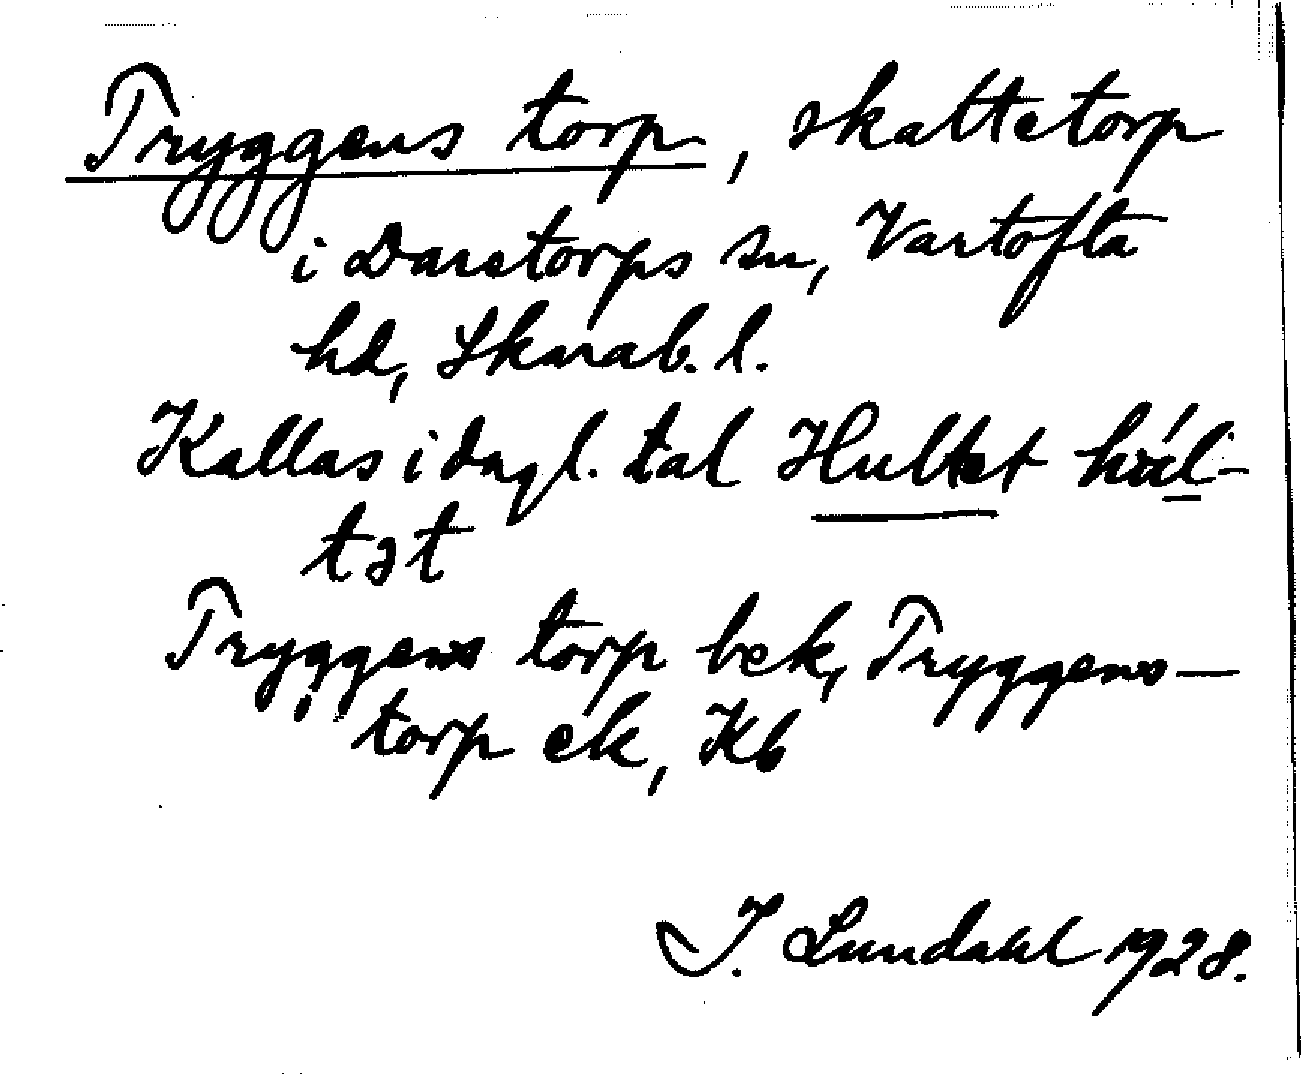 Tryggens torp, skattetorp
i Daretorps sn, Vartofta
hd, Skarab. l.
Kallas i dagl. tal Hultet
tət
Tryggens torp bek, Tryggens-
torp ek, Kb
I. Lundahl 1928.